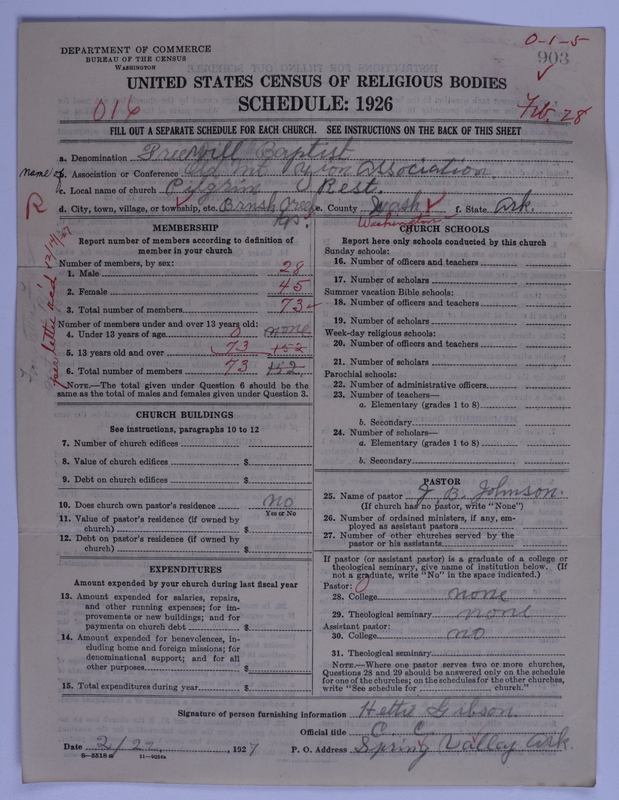 0-1-5
903
DEPARTMENT OF COMMERCE
BUREAU OF THE CENSUS
WASHINGTON
UNITED STATES CENSUS OF RELIGIOUS BODIES
SCHEDULE: 1926
016
Feb 28
FILL OUT A SEPARATE SCHEDULE FOR EACH CHURCH. SEE INSTRUCTIONS ON THE BACK OF THIS SHEET
a. Denomination Freewill Baptist
name of b. Association or Conference Old Mt. Association.
c. Local name of church Pilgrim Rest.
R d. City, town, village, or township, etc. Brush Creek e. County Wash f. State Ark.
Washington
MEMBERSHIP
Report number of members according to definition of member in your church
Number of members, by sex:
1. Male 28
2. Female 45
3. Total number of members 73
Number of members under and over 13 years old:
4. Under 13 years of age 0 none
5. 13 years old and over 73 152
6. Total number of members 73 152
NOTE.—The total given under Question 6 should be the same as the total of males and females given under Question 3.
per letter rec'd 12/14/27
CHURCH BUILDINGS
See instructions, paragraphs 10 to 12
7. Number of church edifices
8. Value of church edifices $
9. Debt on church edifices $
10. Does church own pastor's residence no
Yes or No
11. Value of pastor's residence (if owned by church) $
12. Debt on pastor's residence (if owned by church) $
EXPENDITURES
Amount expended by your church during last fiscal year
13. Amount expended for salaries, repairs, and other running expenses; for improvements or new buildings; and for payments on church debt $
14. Amount expended for benevolences, including home and foreign missions; for denominational support; and for all other purposes $
15. Total expenditures during year $
CHURCH SCHOOLS
Report here only schools conducted by this church
Sunday schools:
16. Number of officers and teachers
17. Number of scholars
Summer vacation Bible schools:
18. Number of officers and teachers
19. Number of scholars
Week-day religious schools:
20. Number of officers and teachers
21. Number of scholars
Parochial schools:
22. Number of administrative officers
23. Number of teachers—
a. Elementary (grades 1 to 8)
b. Secondary
24. Number of scholars—
a. Elementary (grades 1 to 8)
b. Secondary
PASTOR
25. Name of pastor J. B. Johnson.
(If church has no pastor, write "None")
26. Number of ordained ministers, if any, employed as assistant pastors
27. Number of other churches served by the pastor or his assistants
If pastor (or assistant pastor) is a graduate of a college or theological seminary, give name of institution below. (If not a graduate, write "No" in the space indicated.)
Pastor: 0
28. College none
29. Theological seminary none
Assistant pastor:
30. College no
31. Theological seminary
NOTE.—Where one pastor serves two or more churches, Questions 28 and 29 should be answered only on the schedule for one of the churches; on the schedules for the other churches, write "See schedule for church."
Signature of person furnishing information Hettie Gibson
Official title C. C.
Date 2/22, 1927 P. O. Address Spring Valley Ark.
8-5518a 11-9264a